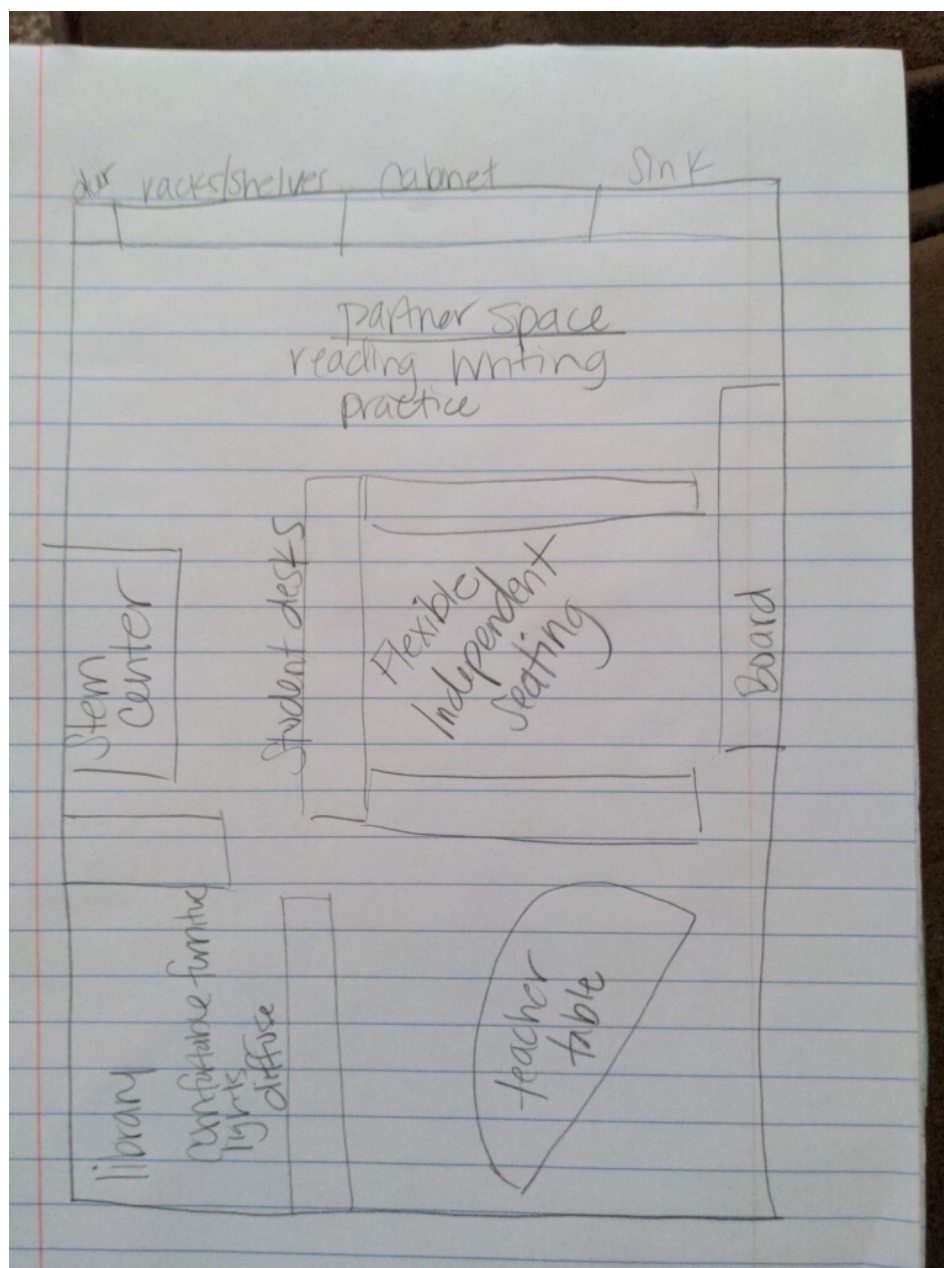 racks/shelves
cabnet
Sink
partner space
reading writing
practice
Student desks
Flexible
Independent
Seating
Board
Stem
Center
library
comfortable furnituc
lights
diffuse
teacher
table